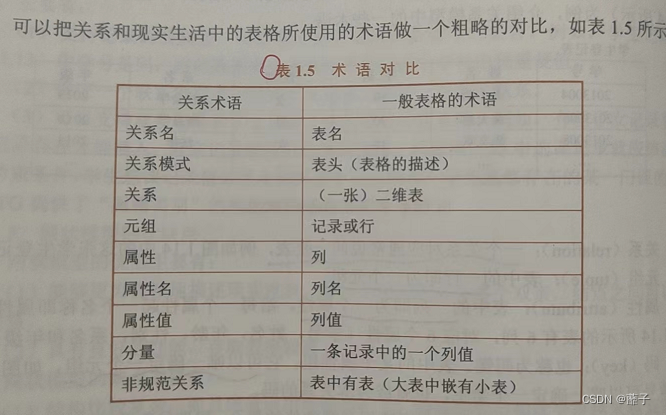 可以把关系和现实生活中的表格所使用的术语做一个粗略的对比，如表 1.5 所示
表 1.5 术语对比
关系术语 一般表格的术语
关系名 表名
关系模式 表头（表格的描述）
关系 （一张）二维表
元组 记录或行
属性 列
属性名 列名
属性值 列值
分量 一条记录中的一个列值
非规范关系 表中有表（大表中嵌有小表）
CSDN @蘸子